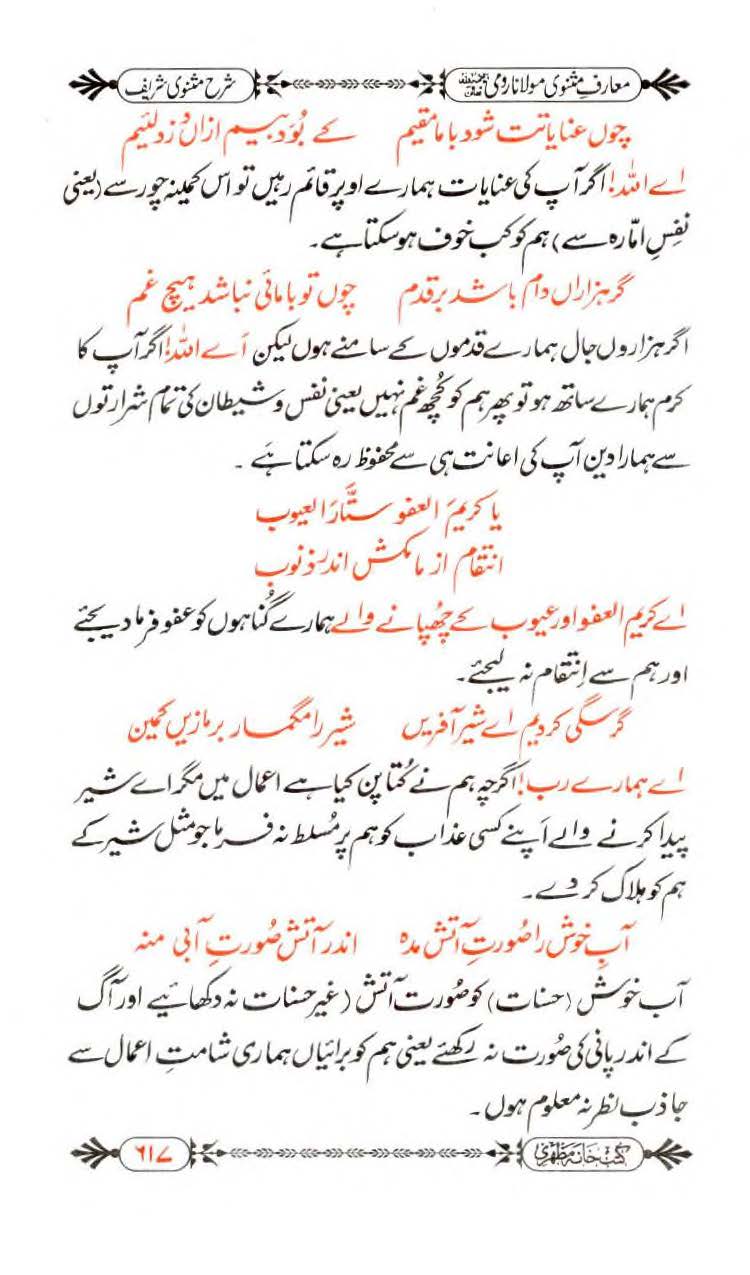 معارفِ مثنوی مولانا رومی شرح مثنوی شریف
چوں عنایاتت شود با ما مقیم کے بُوَد بیم ازاں دُزدِ لئیم
اے اللہ! اگر آپ کی عنایات ہمارے اوپر قائم رہیں تو اس کمینہ چور سے (یعنی
نفسِ امّارہ سے) ہم کو کب خوف ہوسکتا ہے۔
گر ہزاراں دام باشد بر قدم چوں تو بامائی نباشد ہیچ غم
اگر ہزاروں جال ہمارے قدموں کے سامنے ہوں لیکن اَے اللہ! اگر آپ کا
کرم ہمارے ساتھ ہو تو پھر ہم کو کُچھ غم نہیں یعنی نفس و شیطان کی تمام شرارتوں
سے ہمارا دین آپ کی اعانت ہی سے محفوظ رہ سکتا ہَے ۔
یا کریمَ العفو ستَّارَ العیوب
انتقام از ما مکش اندر ذنوب
اے کریم العفو اور عیوب کے چُھپانے والے ہمارے گُناہوں کو عفو فرما دیجئے
اور ہم سے اِنتقام نہ لیجئے۔
گر سگی کردیم اے شیر آفریں شیر را مگمار بر ما زیں کمین
اے ہمارے رب! اگرچہ ہم نے کُتا پن کیا ہے اعمال میں مگر اے شیر
پیدا کرنے والے اَپنے کسی عذاب کو ہم پر مُسلط نہ فرما جو مثل شیر کے
ہم کو ہلاک کر دے۔
آبِ خوش را صُورتِ آتش مدہ اندر آتش صُورتِ آبی منہ
آب خوش (حسنات) کو صُورت آتش (غیر حسنات نہ دکھائیے اور آگ
کے اندر پانی کی صُورت نہ رکھئے یعنی ہم کو برائیاں ہماری شامتِ اعمال سے
جاذب نظر نہ معلوم ہوں۔
کتب خانہ مظہری ۶۱۷